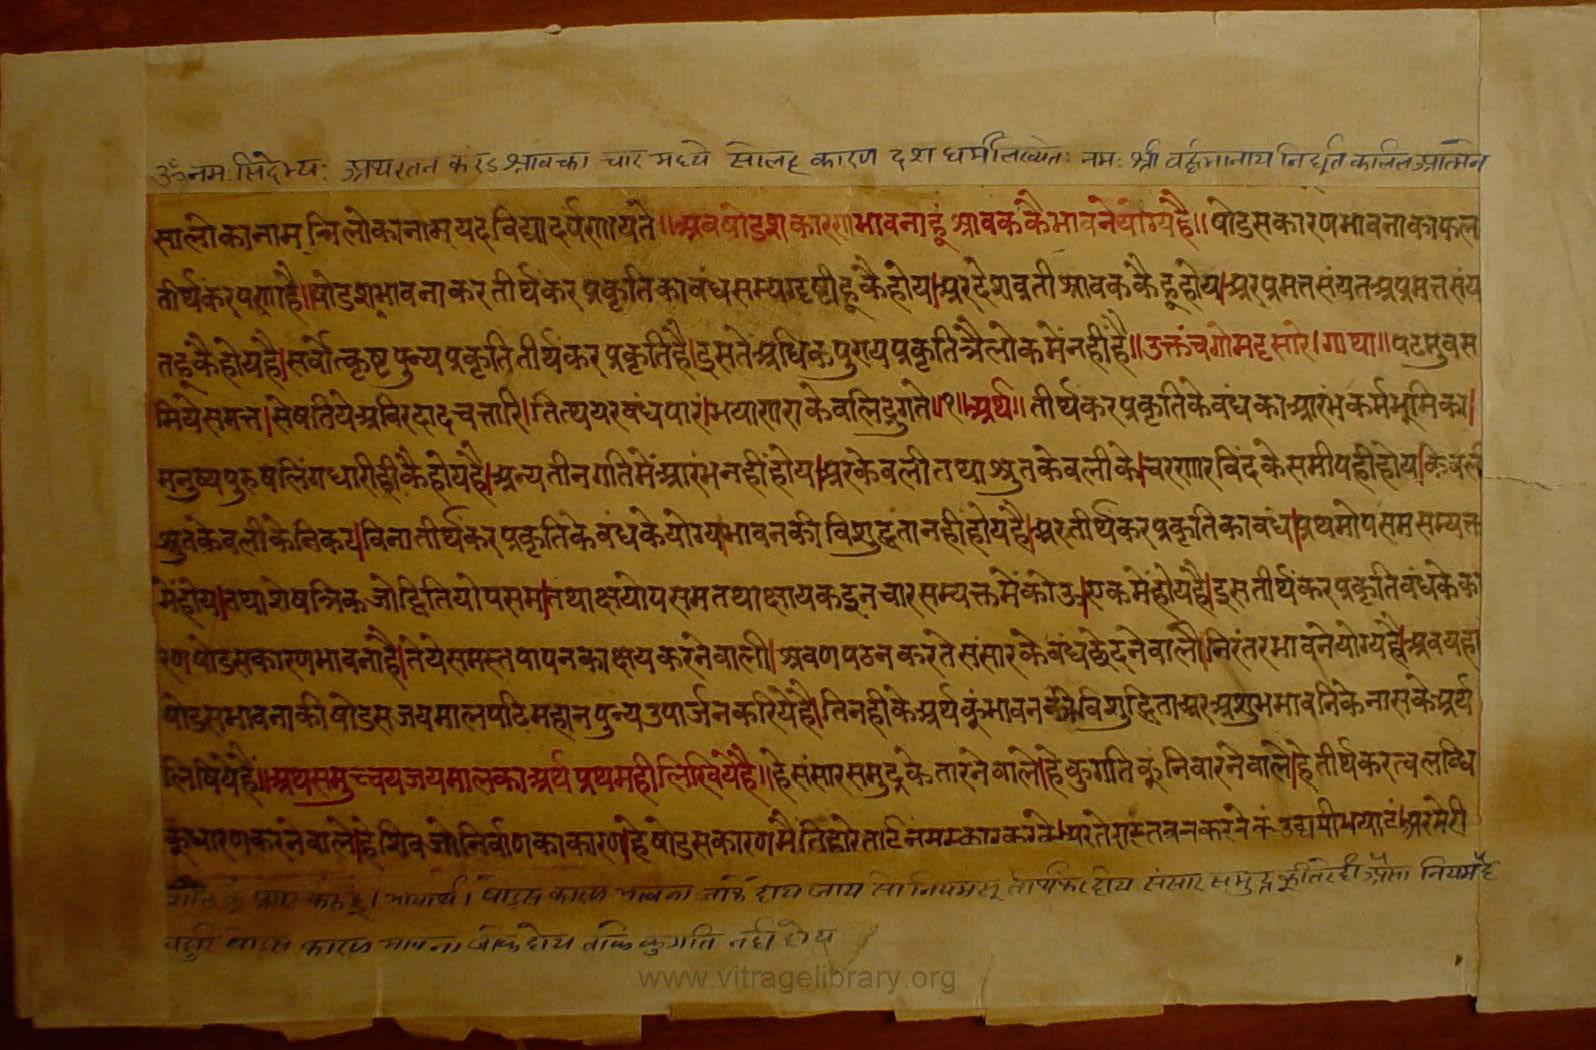 ॐ नमः सिदेभ्यः अथ रतन करंड श्रावका चार मध्ये सोलह कारण दश धर्म लिख्येतः नमः श्री वर्द्धमानाय निर्द्धूत कलिल आत्मने
सालोकानाम् त्रिलोकानाम यद विद्या दर्पणायते॥ अब षोडश कारण भावना हूं श्रावककै भावने योग्य है॥ षोडसकारण भावना का फल
तीर्थंकर पणा है॥ षोडश भावना कर तीर्थंकर प्रकृति का बंध सम्यग्दृष्टी हू कै होय। अर देशव्रती श्रावककै हू होय। अर प्रमत्त संयत अप्रमत्त संय
त हू कै होय है। सर्वोत्कृष्ट पुन्य प्रकृति तीर्थंकर प्रकृति है। इसते अधिक पुण्य प्रकृति त्रैलोक में नहीं है॥ उक्तंच गोमट्टसारे। गाथा॥ पढमुवस
मिये सम्मत्त। सेषतिये अविरदादचत्तारि। तित्थयरबंधपारं। भयाणरा केवलिदुगंते॥१॥ अर्थ॥ तीर्थंकर प्रकृति के बंध का आरंभ कर्मभूमि का।
मनुष्य पुरुषलिंगधारी ही कै होय है। अन्य तीन गति में आरंभ नहीं होय। अर केवली तथा श्रुत केवली के। चरणारविंद के समीप ही होय। केवली
श्रुतकेवली के निकट। विना तीर्थंकर प्रकृति के बंध के योग्य। भावन की विशुद्धता नहीं होय है। अर तीर्थंकर प्रकृति का बंध। प्रथमोपसम सम्यक्त
में होय। तथा शेषत्रिक जो द्वितियोपसम। तथा क्षयोपसम तथा क्षायक इन चार सम्यक्त में कोऊ। एक में होय है। इस तीर्थंकर प्रकृति बंध के का
रण षोडसकारण भावना है। ते ये समस्त पापन का क्षय करने वाली। श्रवण पठन करते संसार के बंध छेदने वाली। निरंतर भावने योग्य है। अब यहां
षोडस भावना की षोडस जयमाल पढि महान पुन्य उपार्जन करिये है। तिनही के अर्थ कुं भावन की विशुद्धिता अर अशुभ भावनि के नास के अर्थ
लिषिये है॥ अथ समुच्चय जयमाल का अर्थ प्रथम ही लिखिये है॥ हे संसार समुद्र के तारने वाले। हे कुगति कुं निवारने वाले। हे तीर्थंकरत्व लब्धि
कुं धारण करने वाले। हे शिव जो निर्वाण का कारण। हे षोडसकारण मैं तिहारे ताई नमस्कार करके। अर तेरा स्तवन करने कुं उद्यमी भया हूं। अर मेरी
शक्ति कुं प्रगट करुं हूं। भावार्थ। षोडस कारण भावना जाकै होय जाय सो नियमसू तीर्थंकर होय संसार समुद्र कूं तिरे ही ऐसा नियम है
बहुरि षोडस कारण भावना जाकै होय ताकै कुगति नहीं होय
www.vitragelibrary.org